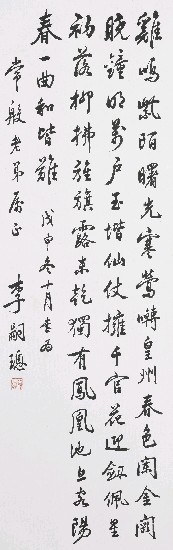 雞鳴紫陌曙光寒鶯囀皇州春色闌金闕
曉鐘開萬戶玉堦仙仗擁千官花迎劍佩星
初落柳拂旌旗露未乾獨有鳳凰池上客陽
春一曲和皆難 戊申冬十月書為
常殷老弟屬正 李嗣璁